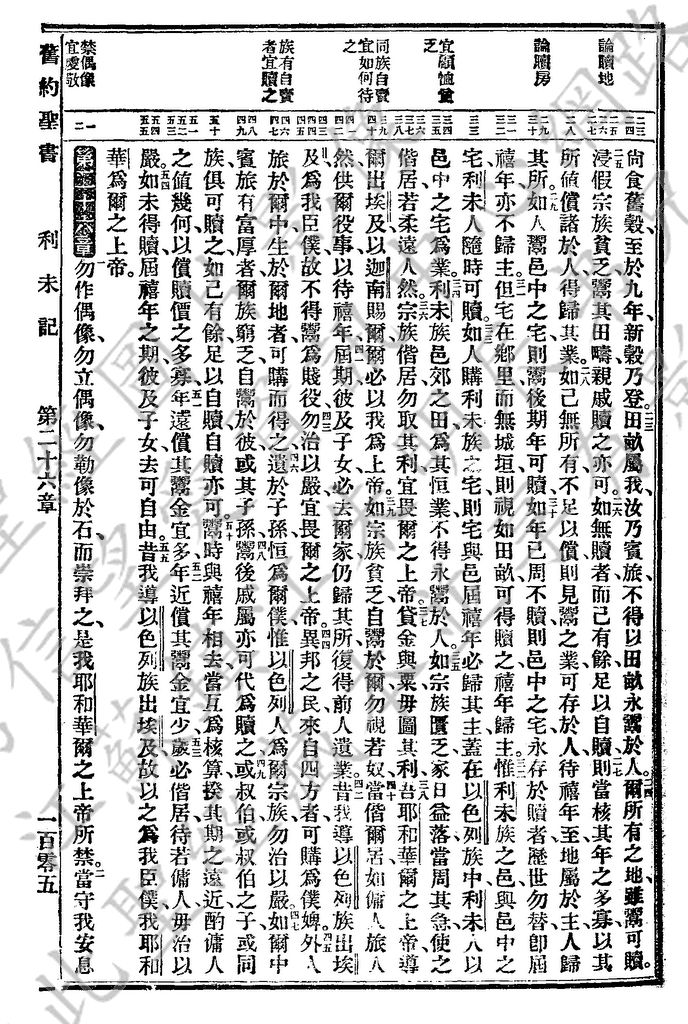 論贖地
論贖房
宜顧恤貧乏
同族自賣宜如何待之
族有自賣者宜贖之
禁偶像宜虔敬
尙食舊穀至於九年新穀乃登田畝屬我汝乃賓旅不得以田畝永鬻於人爾所有之地雖鬻可贖
浸假宗族貧乏鬻其田疇親戚贖之亦可如無贖者而己有餘足以自贖則當核其年之多寡以其
所値償諸於人得歸其業如己無所有不足以償則見鬻之業可存於人待禧年至地屬於主人歸
其所如人鬻邑中之宅則鬻後期年可贖如年已周不贖則邑中之宅永存於贖者歷世勿替卽屆
禧年亦不歸主但宅在鄉里而無城垣則視如田畝可得贖之禧年歸主惟利未族之邑與邑中之
宅利未人隨時可贖如人購利未族之宅則宅與邑屆禧年必歸其主蓋在以色列族中利未人以
邑中之宅爲業利未族邑郊之田爲其恒業不得永鬻於人如宗族匱乏家日益落當周其急使之
偕居若柔遠人然宗族偕居勿取其利宜畏爾之上帝貸金與粟毋圖其利吾耶和華爾之上帝導
爾出埃及以迦南賜爾爾必以我爲上帝如宗族貧乏自鬻於爾勿視若奴當偕爾居如傭人旅人
然供爾役事以待禧年屆期彼及子女必去爾家仍歸其所復得前人遺業昔我導以色列族出埃
及爲我臣僕故不得鬻爲賤役勿治以嚴宜畏爾之上帝異邦之民來自四方者可購爲僕婢外人
旅於爾中生於爾地者可購而得之遺於子孫恒爲爾僕惟以色列人爲爾宗族勿治以嚴如爾中
賓旅有富厚者爾族窮乏自鬻於彼或其子孫鬻後戚屬亦可代爲贖之或叔伯或叔伯之子或同
族俱可贖之如己有餘足以自贖自贖亦可鬻時與禧年相去當互爲核算揆其期之遠近酌傭人
之値幾何以償贖價之多寡年遠償其鬻金宜多年近償其鬻金宜少歲必偕居待若傭人毋治以
嚴如未得贖屆禧年之期彼及子女去可自由昔我導以色列族出埃及故以之爲我臣僕我耶和
華爲爾之上帝。
第二十六章 勿作偶像勿立偶像勿勒像於石而崇拜之是我耶和華爾之上帝所禁當守我安息
舊約聖書 利未記 第二十六章 一百零五